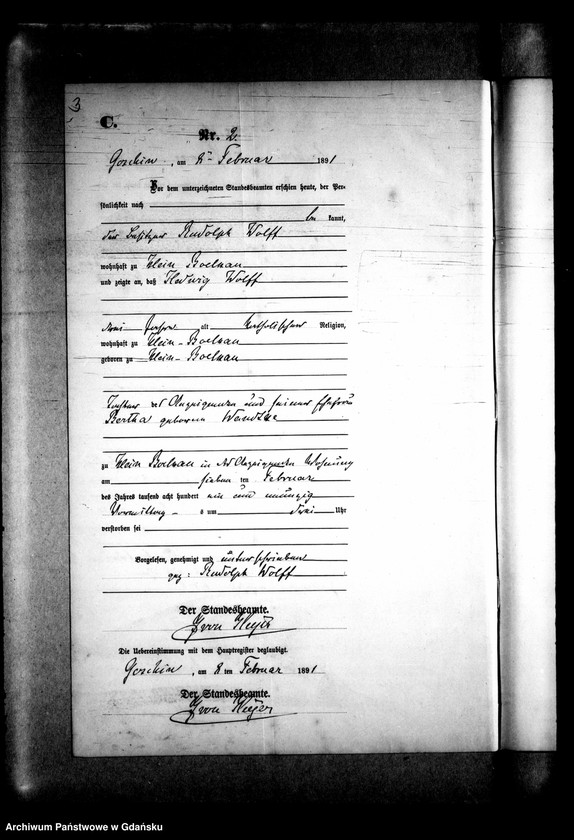 3
C.
Nr. 2.
Goschin, am 8ten Februar 1891
Vor dem unterzeichneten Standesbeamten erschien heute, der Per-
sönlichkeit nach
be kannt,
der Besitzer Rudolph Wolff
wohnhaft zu Klein Boelkau
und zeigte an, daß Hedwig Wolff
drei Jahre alt katholischer Religion,
wohnhaft zu Klein-Boelkau
geboren zu Klein-Boelkau
Tochter des Anzeigenden und seiner Ehefrau
Bertha geborene
zu Klein Boelkau in des Anzeigenden Wohnung
am sieben ten Februar
des Jahres tausend acht hundert ein und neunzig
Vormittag s um drei Uhr
verstorben sei
Vorgelesen, genehmigt und unterschrieben
gez: Rudolph Wolff
Der Standesbeamte.
von Heyer
Die Uebereinstimmung mit dem Hauptregister beglaubigt.
Goschin, am 8 ten Februar 1891
Der Standesbeamte.
von Heyer
Archiwum Państwowe w Gdańsku